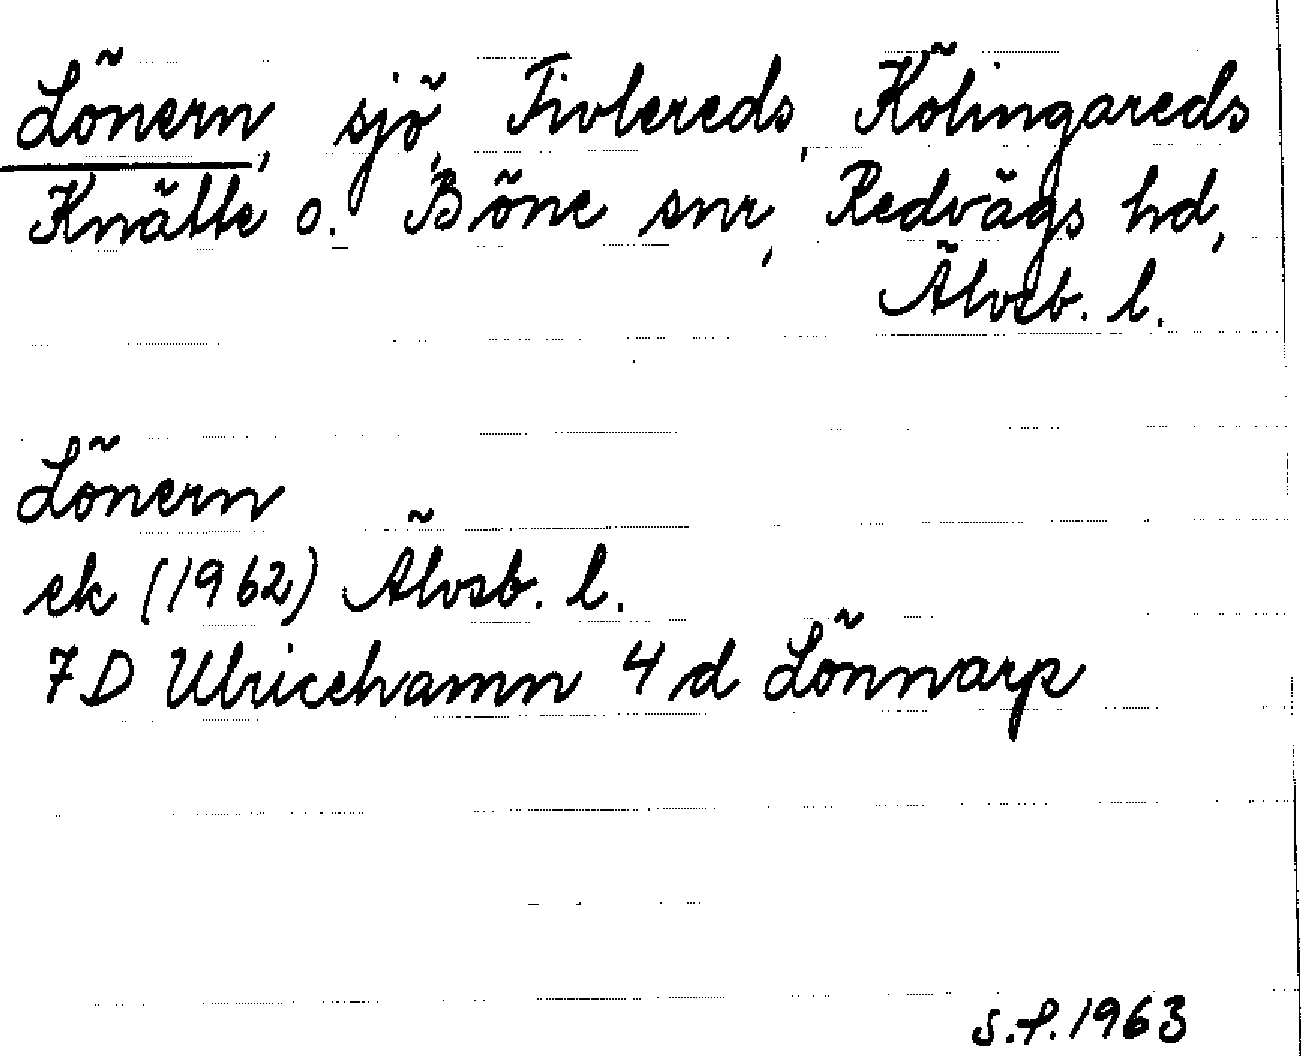 Lönern, sjö, Tivlereds, Kölingareds
Knätte o. Böne snr, Redvägs hd,
Älvsb. l.
Lönern
ek (1962) Älvsb. l.
7D Ulricehamn 4 d Lönnarp
S.P. 1963